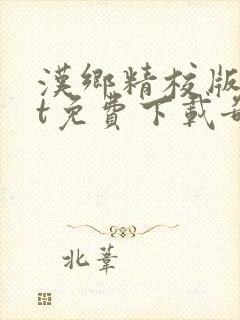 漢鄉精校版
t免費下載
北葦